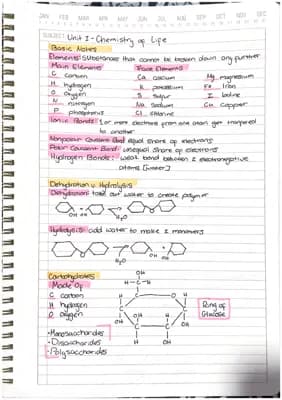 JAN FEB MAR APR MAY JUN JUL AUG SEP OCT NOV DEC
SUBJECT: Unit 1 - Chemistry of Life
Basic Notes
Elements: Substances that cannot be broken down any further
Main Elements Trace Elements
C carbon Ca calcium Mg magnesium
H hydrogen K potassium Fe Iron
O Oxygen S sulfur I Iodine
N nitrogen Na Sodium Cu Copper
P phosphorus Cl chlorine
Ionic Bonds: 1 or more electrons from one atom get transferred
to another
Nonpolar Covalent Bond: equal share of electrons
Polar Covalent Bond: unequal share of electrons
Hydrogen Bonds: weak bond between 2 electronegative
atoms [water]
Dehydration v. Hydrolysis
Dehydration: take out water to create polymer
OH OH
H₂O
O
Hydrolysis: add water to make 2 monomers
O
H₂O
OH OH
Carbohydrates
Made Of
C carbon
H hydrogen
O oxygen
•Monosaccharides
•Disaccharides
•Polysaccharides
OH
H-C-H
C O H
H H
C C
OH OH H OH
C C
H OH
Ring of
Glucose